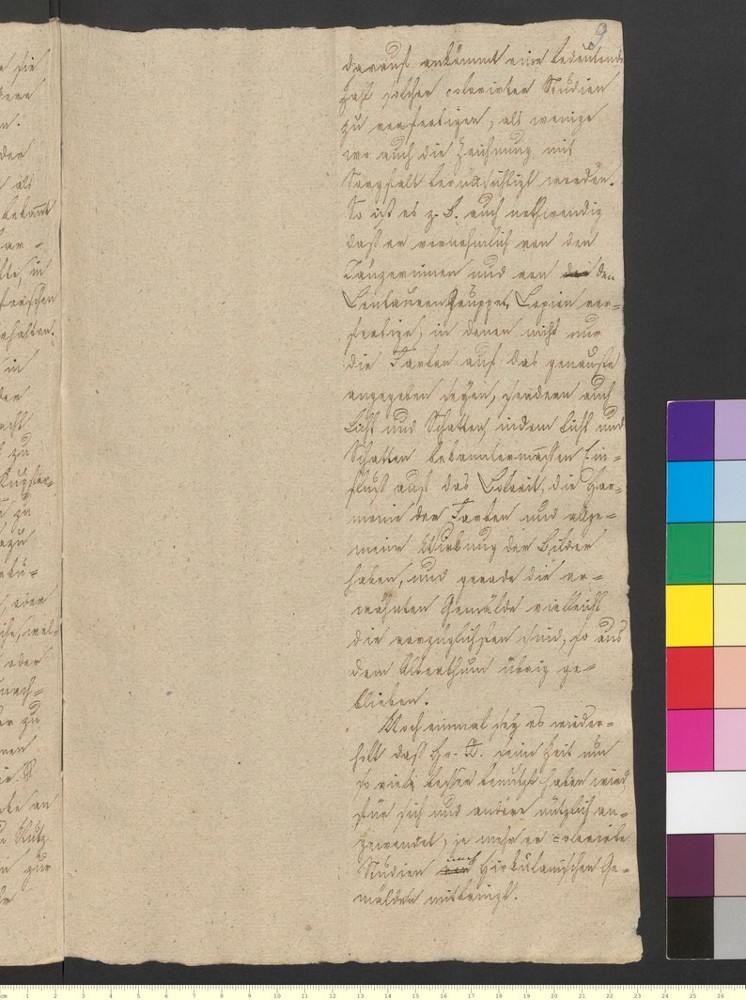 9
darauf ankommt eine bedeutende
Zahl solcher colorirten Studien
zu verfertigen, als wenige
wo auch die Zeichnung mit
Sorgfalt berücksichtigt worden.
So ist es z. B. auch nothwendig
daß er vornehmlich von den
Tänzerinnen und von den
Centauren Gruppen, Copien ver-
fertige, in denen nicht nur
die Farben auf das genauste
angegeben seyen, sondern auch
Licht und Schatten, indem Licht und
Schatten bekanntermaßen Ein-
fluß auf das Colorit, die Har-
monie der Farben und allge-
meine Wirkung der Bilder
haben, und gerade die er-
wähnten Gemälde vielleicht
die vorzüglichsten sind, so aus
dem Alterthum übrig ge-
blieben.
Noch einmal sey es wieder-
holt daß Hr. T. seine Zeit nun
so viel besser benutzt haben wird
für sich und andere nützlich an-
gewendet, je mehr er colorirte
Studien nach Herkulanischen Ge-
mälden mitbringt.